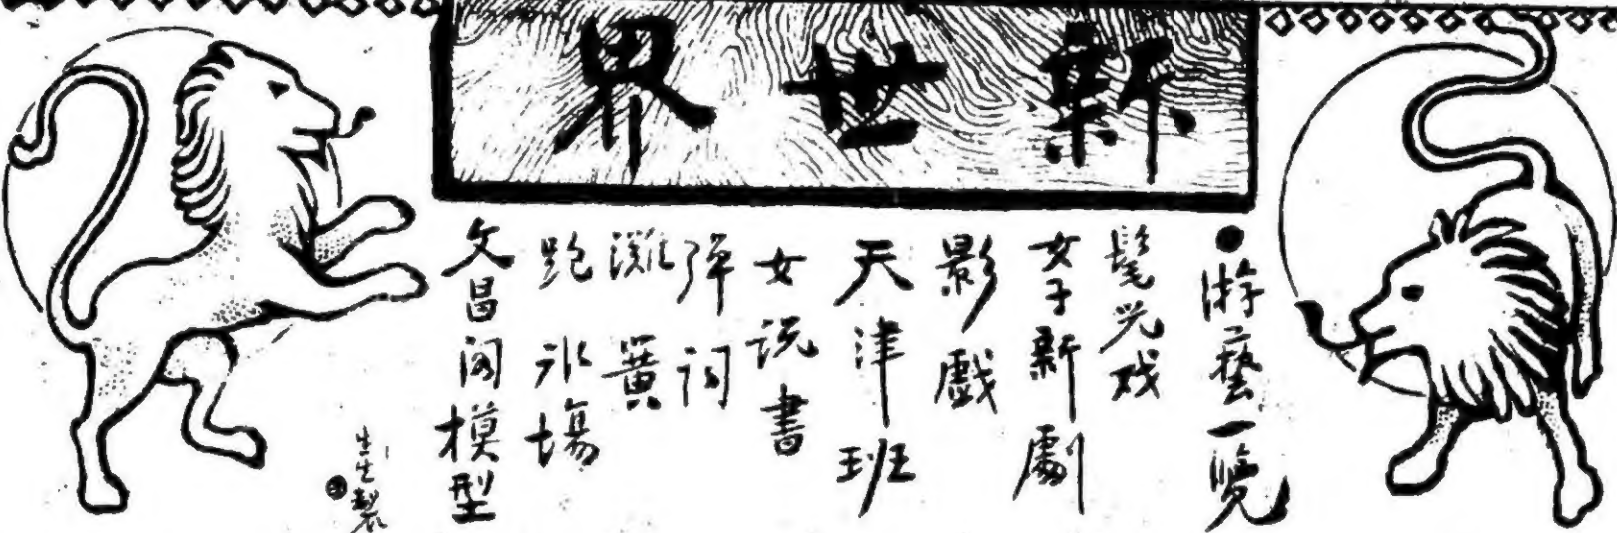 新世界
●游藝一覽
髦兒戏
女子新劇
影戲
天津班
女说書
弹词
灘簧
跑冰場
文昌阁模型
生生製